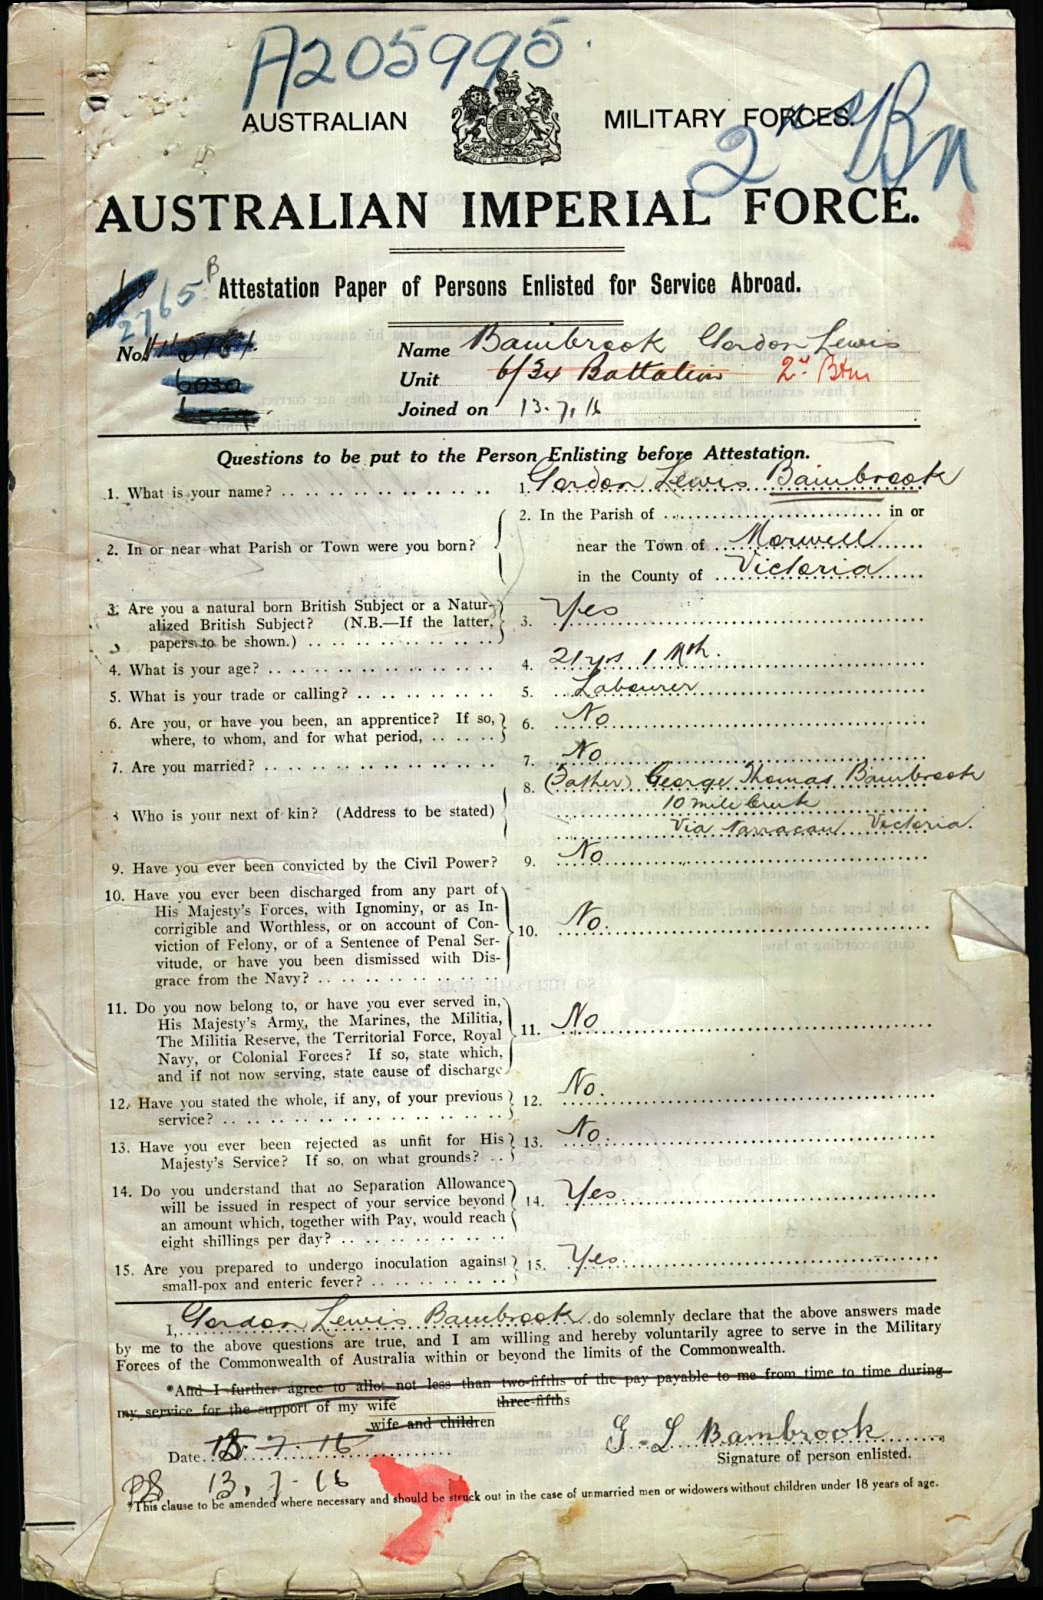 A205995
AUSTRALIAN MILITARY FORCES.
2nd Bn
AUSTRALIAN IMPERIAL FORCE.
Attestation Paper of Persons Enlisted for Service Abroad.
2765 B
No.
Name Bambrook Gordon Lewis
Unit 6/34 Battalion 2nd Btn
Joined on 13.7.16
Questions to be put to the Person Enlisting before Attestation.
1. What is your name? 1. Gordon Lewis Bambrook
2. In or near what Parish or Town were you born? 2. In the Parish of in or
near the Town of Morwell
in the County of Victoria
3. Are you a natural born British Subject or a Natur-
alized British Subject? (N.B.—If the latter, 3. Yes
papers to be shown.)
4. What is your age? 4. 21 yrs 1 Mth.
5. What is your trade or calling? 5. Labourer
6. Are you, or have you been, an apprentice? If so, 6. No
where, to whom, and for what period,
7. Are you married? 7. No
8. (Father) George Thomas Bambrook
Who is your next of kin? (Address to be stated) 10 mile Creek
Via Narracan Victoria.
9. Have you ever been convicted by the Civil Power? 9. No
10. Have you ever been discharged from any part of
His Majesty's Forces, with Ignominy, or as In-
corrigible and Worthless, or on account of Con-
viction of Felony, or of a Sentence of Penal Ser- 10. No.
vitude, or have you been dismissed with Dis-
grace from the Navy?
11. Do you now belong to, or have you ever served in,
His Majesty's Army, the Marines, the Militia,
The Militia Reserve, the Territorial Force, Royal 11. No
Navy, or Colonial Forces? If so, state which,
and if not now serving, state cause of discharge
12. Have you stated the whole, if any, of your previous 12. No.
service?
13. Have you ever been rejected as unfit for His 13. No.
Majesty's Service? If so, on what grounds?
14. Do you understand that no Separation Allowance
will be issued in respect of your service beyond 14. Yes
an amount which, together with Pay, would reach
eight shillings per day?
15. Are you prepared to undergo inoculation against 15. Yes
small-pox and enteric fever?
I, Gordon Lewis Bambrook do solemnly declare that the above answers made
by me to the above questions are true, and I am willing and hereby voluntarily agree to serve in the Military
Forces of the Commonwealth of Australia within or beyond the limits of the Commonwealth.
*And I further agree to allot not less than two-fifths of the pay payable to me from time to time during
three-fifths
my service for the support of my wife
wife and children
Date 13.7.16 G. L Bambrook
Signature of person enlisted.
13.7.16
*This clause to be amended where necessary and should be struck out in the case of unmarried men or widowers without children under 18 years of age.